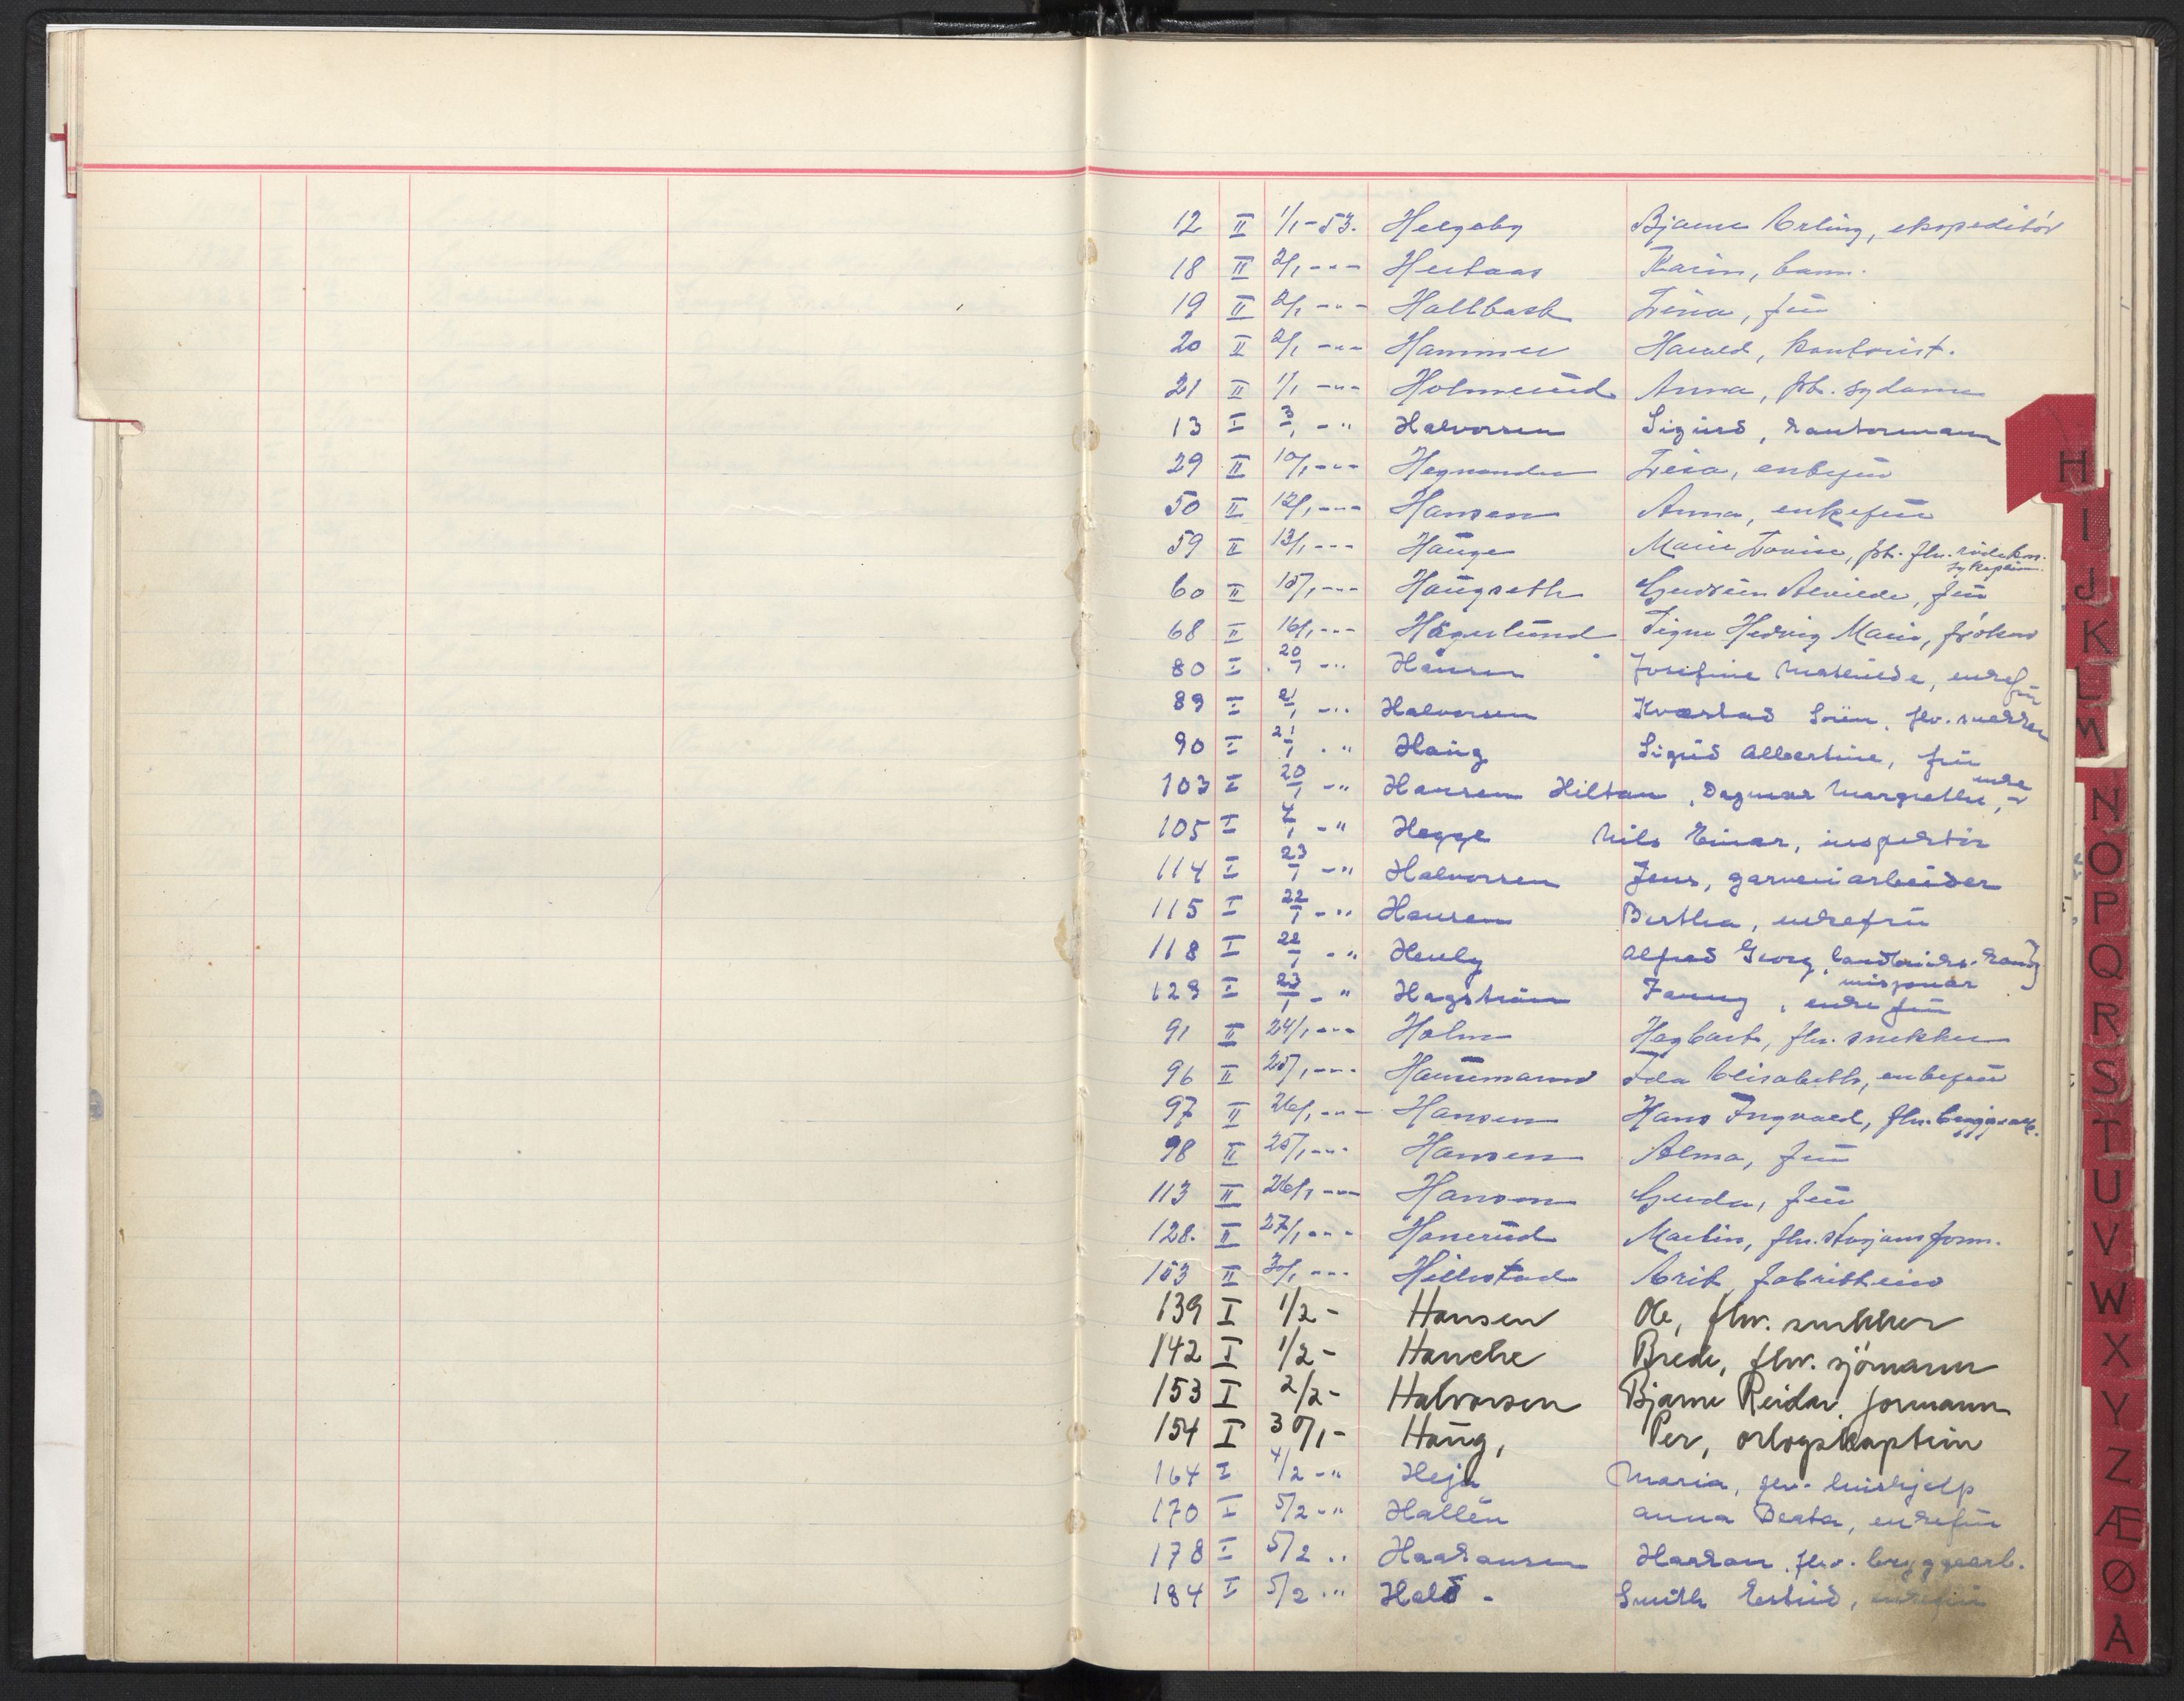 12 II 1/1-53. Helgeby Bjarne Erling, ekspeditör
18 II 2/1 -"- Herlaas Karin, barn.
19 II 2/1 -"- Hallback Lina, frü
20 II 2/1 -"- Hammer Harald, kontorist.
21 II 1/1 -"- Holmerüd Anna, fhv. sydame
13 I 3/1 -" Halvorsen Sigürd, kontormann
29 II 10/1 -"- Hegnander Lina, enkefrü
50 II 12/1 -"- Hansen Anna, enkefrü
59 II 13/1 -"- Haüge Marie Lovise, fhv. rödekors
sykepleier.
60 II 15/1 -"- Haügseth Güdrün Alvilde, frü
68 II 16/1 -"- Hägerlünd Signe Hedvig Marie, fröken
80 I 20/1 -" Hansen Josefine Mathilde, enkefrü
89 I 21/1 -" Halvorsen Kvarstad Sören, fhv. snekker
90 I 21/1 -" Haüg Sigrid Albertine, frü
103 I 20/1 -" Hansen Hiltan, Dagmar Margrethe, enke
105 I 4/1 -" Hegge Nils Einar, inspektör
114 I 23/1 -" Halvorsen Jens, garveriarbeider
115 I 22/1 -" Hansen Bertha, enkefrü
118 I 22/1 -" Alfred Georg, landbrüks-kand.
misjonär
129 I 23/1 -" Hagström Fanny, enkefrü
91 II 24/1 -"- Holm Hagbart, fhv. snekker
96 II 25/1 -"- Hannemann Ida Elisabeth, enkefrü
97 II 26/1 -"- Hansen Hans Ingvald, fhv. bryggearb.
98 II 25/1 -"- Hansen Alma, frü
113 II 26/1 -"- Hanson Gerda, frü
128. II 27/1 -"- Hanerüd Martin, fhv. stasjonsform.
153 II 30/1 -"- Hillestad Erik, fabrikkeier
139 I 1/2 - Hansen Ole, fhv. snekker
142 I 1/2 - Hanche Brede, fhv. sjömann
153 I 2/2 - Halvorsen Bjarne Reidar, formann
154 I 30/1 - Haüg, Per, orlogskaptein
164 I 4/2 -" Heja Maria, fhv. hüshjelp
170 I 5/2 -" Hallén Anna Beata, enkefrü
178 I 5/2 -" Haakonsen Haakon, fhv. bryggearb.
184 I 5/2 -" Hald - Smith Estrid, enkefrü
H
I
J
K
L
M
N
O
P
Q
R
S
T
U
V
W
X
Y
Z
Æ
Ø
A